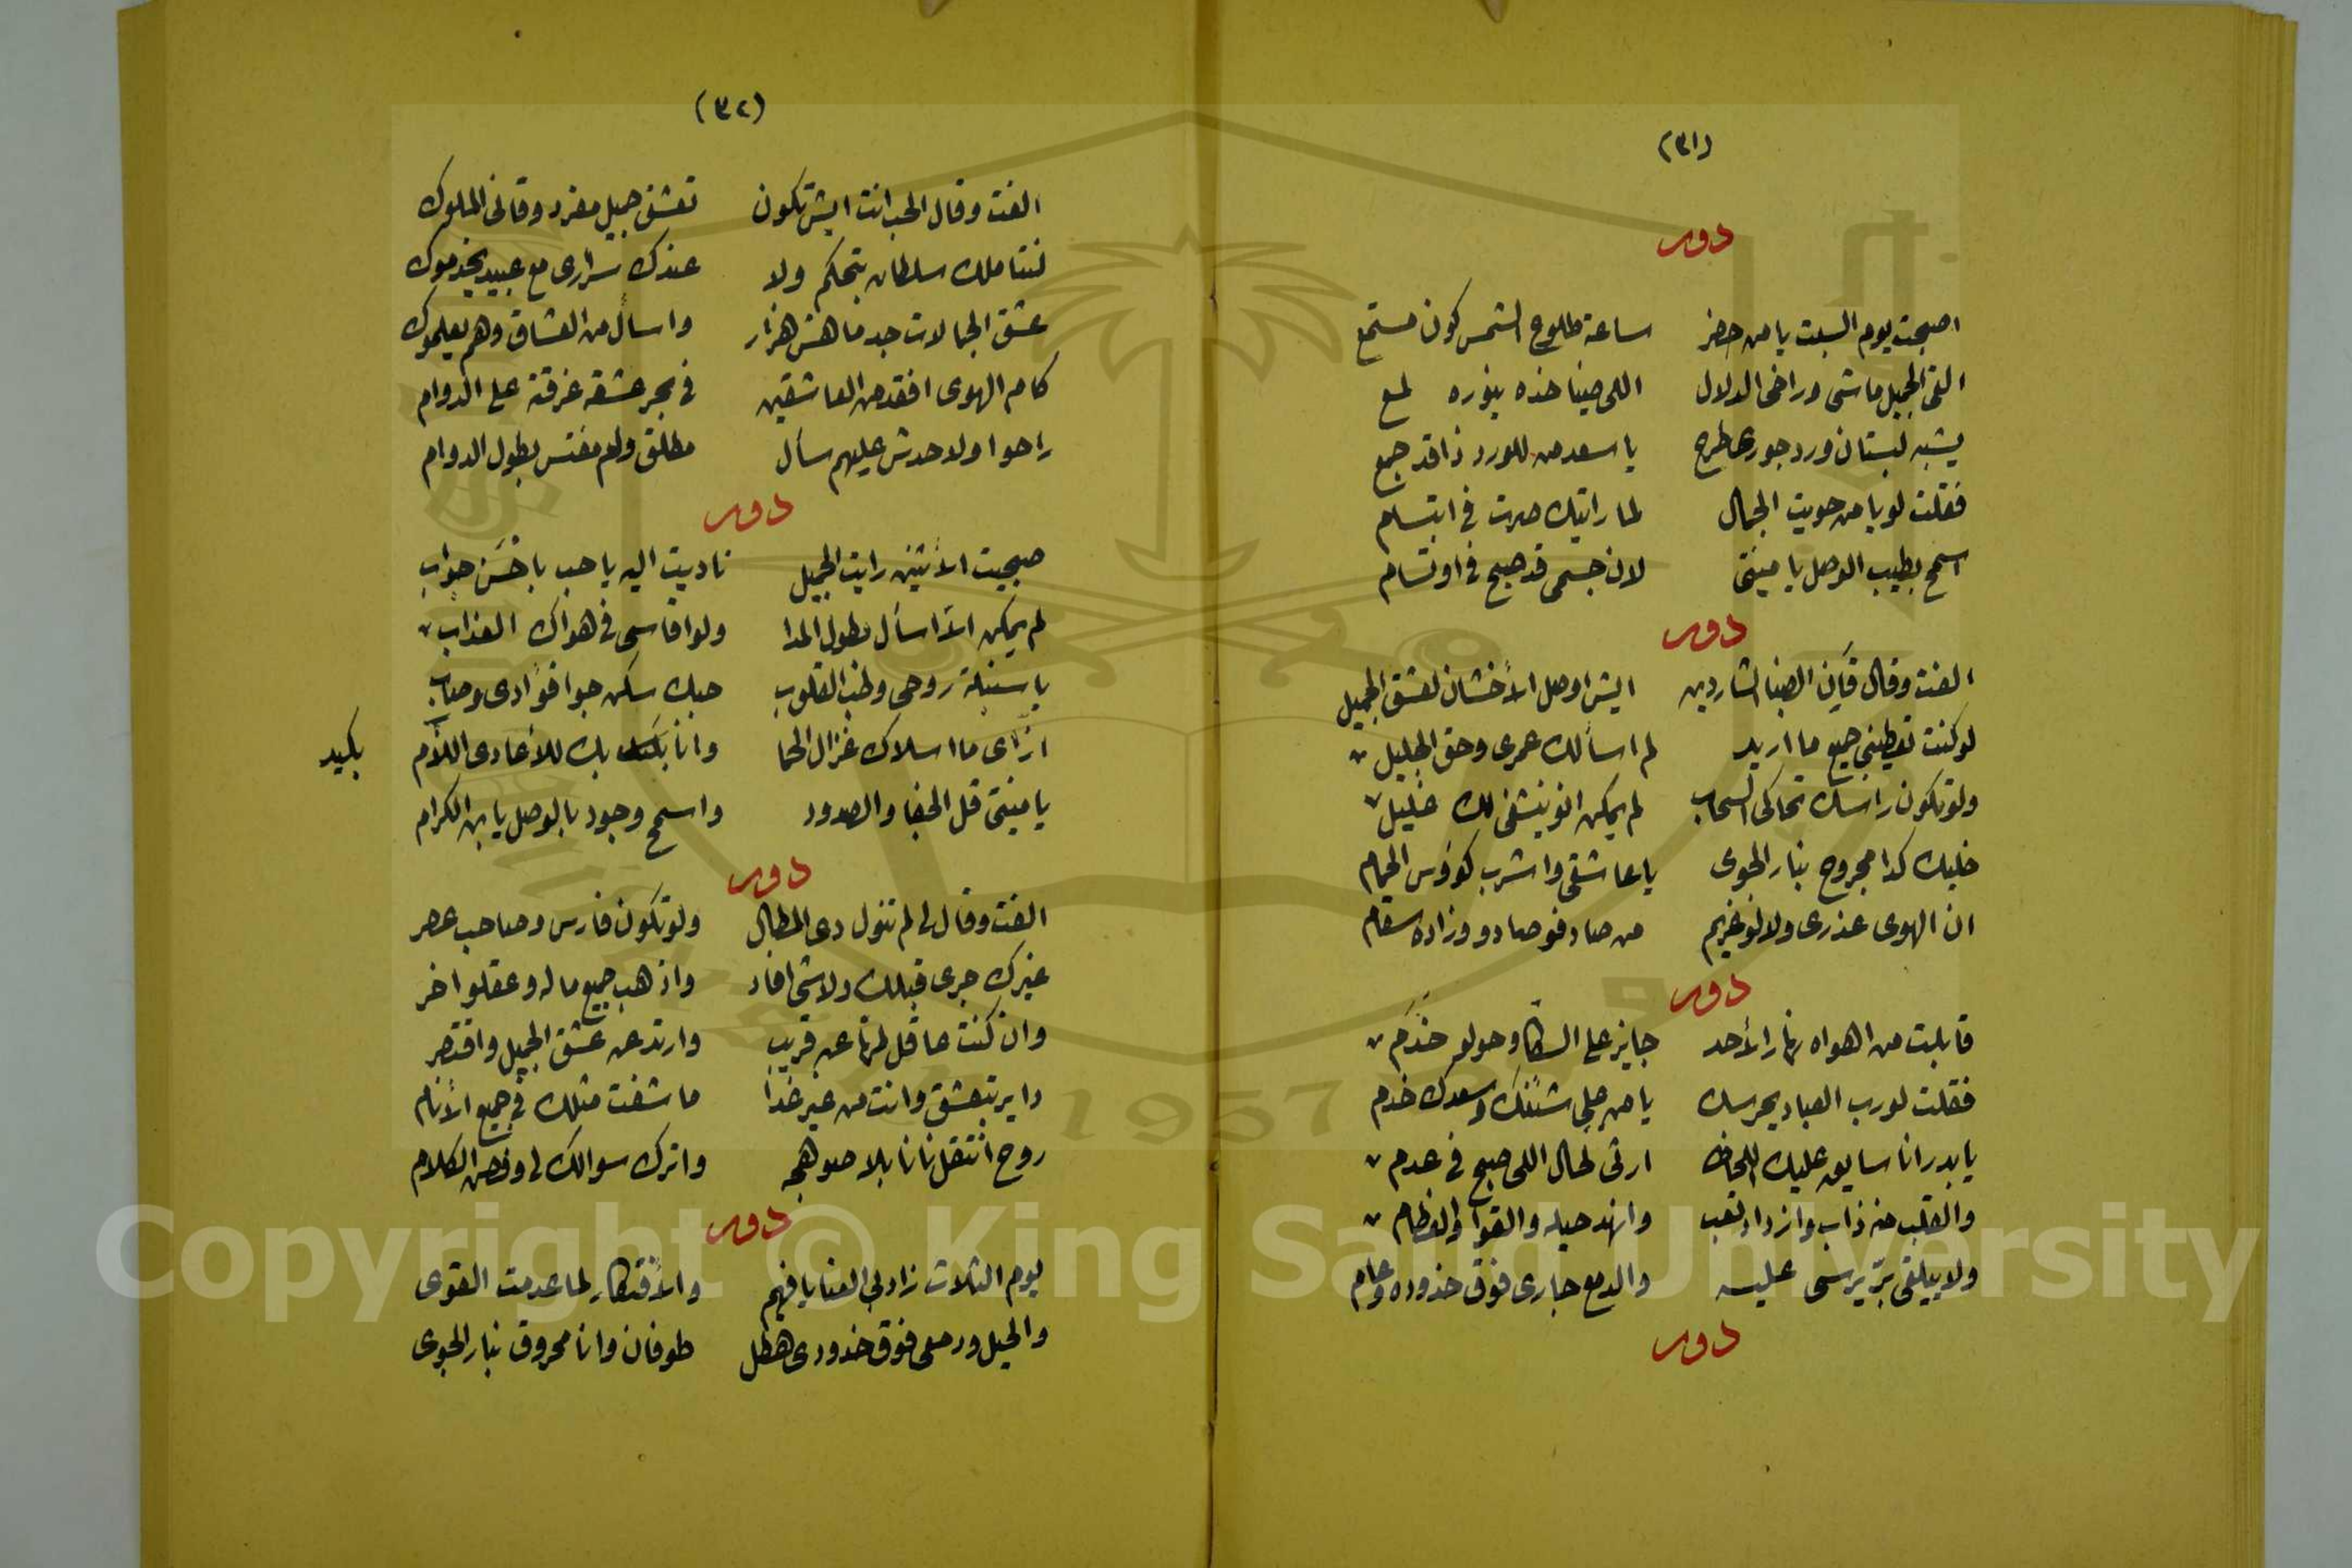 (٣١)
دور
اصبحت يوم السبت يا من حضر ساعة طلوع الشمس كون مستمع
التقى الجميل ماشى وراخى الدلال اللى ضيا خده بنوره لمع
يشبه لبستان ورد جورى طرح يا سعد من للورد ذا قد جمع
فقلت لو يا من حويت الجمال لما رايتك صرت فى ابتسام
اسمح بطيب الوصل يا منيتى لان جسمى قد صبح فى
دور
التفت وقال الضبا الشاردين ايش اوصل لعشق الجميل
لو كنت تعطينى جميع ما اريد لم اسألك عمرى وحق الجليل
ولو تكون راسك تحاكى السحاب لم يمكن انو ينشفى لك غليل
خليك كدا مجروح بنار الجوى يا عاشقى واشرب كووس الحمام
ان الهوى عذرى ولا لو غريم من صادفو صادو وزاده سقام
دور
قابلت من اهواه نهار الأحد جايز على السكا وحولو خدم
فقلت لو رب العباد يحرسك يا من على وسعدك خدم
يا بدر انا سايق عليك اللحاظ ارثى لحال اللى صبح فى عدم
والقلب منه ذاب وازداد تعب وانهد حيله والقوا والعظام
ولا بيلقى بر يرسى عليه والدمع جارى فوق خدوده وعام
دور
(٣٢)
التفت وقال الحب انت ايش تكون تعشق جميل مفرد وقانى الملوك
لنتا ملك سلطان بتحكم ولا عندك سرارى مع عبيد يخدموك
عشق الجمالات جد ماهش هزار واسأل من العشاق وهم يعلموك
كام الهوى افقد من العاشقين فى بحر عشقه غرقة على الدوام
راحوا ولا حدش عليهم سأل مطلق ولم مفتس بطول الدوام
دور
صبحيت الأثنين رايت الجميل ناديت اليه يا حب باحسن جواب
لم يمكن اسأل بطول المدا ولو اقاسى فى هواك العذاب
يا سنبلة روحى وطب القلوب حبك سكن جوا فؤادى وصاب
ازاى ما اسلاك غزال الحما وانا بك للأعادى اللأم
بكيد
يا منيتى قل الجفا والصدود واسمح وجود بالوصل يا ابن الكرام
دور
التفت وقال لى لم تنول دى المطال ولو تكون فارس وصاحب عصر
غيرك جرى قبلك ولاشى افاد واذهب جميع ماله وعقلو اخر
وان كنت عاقل لمها عن قريب وارتد عن عشق الجميل واقتصر
دا ير بتعشق وانت من غير غذا ما شفت مثلك فى جميع الأنام
روح انتقل نانا بلا صو هجه واترك سوالك لى وقصر الكلام
دور
يوم التلات زاد بى العنا يا فهيم والأفتكار لما عدمت القوى
والحيل ودمعى فوق خدودى هطل طوفان وانا محروق بنار الجوى
Copyright © King Saud University
1957